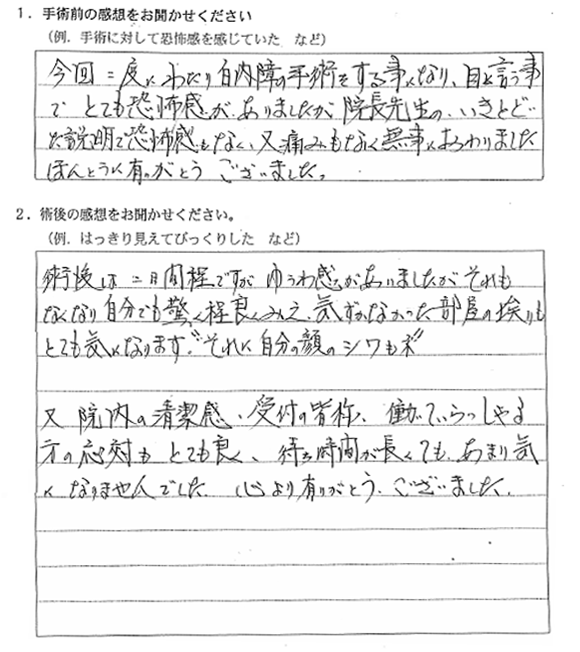 1．手術前の感想をお聞かせください
（例．手術に対して恐怖感を感じていた　など）
今回二度にわたり白内障の手術をする事になり、目と言う事
で とても恐怖感が ありましたが 院長先生の、いきとど
た説明で恐怖感もなく、又痛みもなく無事におわりました
ほんとうに有りがとう ございました。
2．術後の感想をお聞かせください。
（例．はっきり見えてびっくりした　など）
術後は 二日間程ですが ゆうわ感がありましたが それも
なくなり 自分でも驚く程良くみえ 気ずかなかった部屋の埃りも
とても気になります。それに自分の顔のシワも
又 院内の清潔感、受付の皆称、働ていらっしゃる
方の応対も とても良く、待ち時間が長くても あまり気
に なりませんでした 心より有りがとう、ございました.